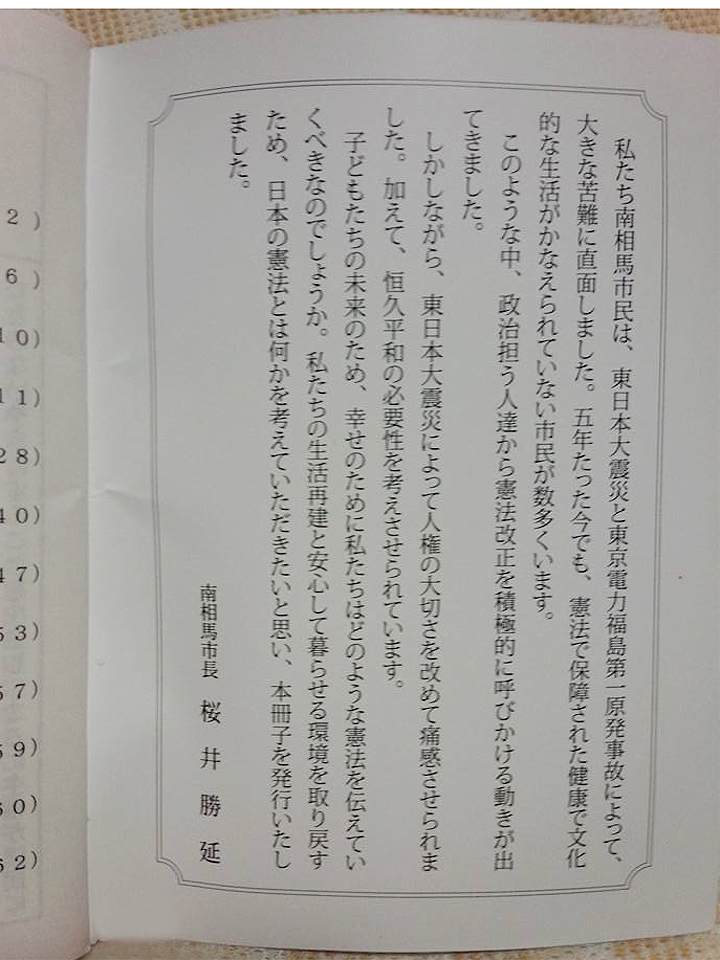 私たち南相馬市民は、東日本大震災と東京電力福島第一原発事故によって、
大きな苦難に直面しました。五年たった今でも、憲法で保障された健康で文化
的な生活がかなえられていない市民が数多くいます。
このような中、政治担う人達から憲法改正を積極的に呼びかける動きが出
てきました。
しかしながら、東日本大震災によって人権の大切さを改めて痛感させられま
した。加えて、恒久平和の必要性を考えさせられています。
子どもたちの未来のため、幸せのために私たちはどのような憲法を伝えてい
くべきなのでしょうか。私たちの生活再建と安心して暮らせる環境を取り戻す
ため、日本の憲法とは何かを考えていただきたいと思い、本冊子を発行いたし
ました。
南相馬市長 桜井勝延
2)
6)
10)
11)
28)
40)
47)
53)
57)
59)
60)
62)